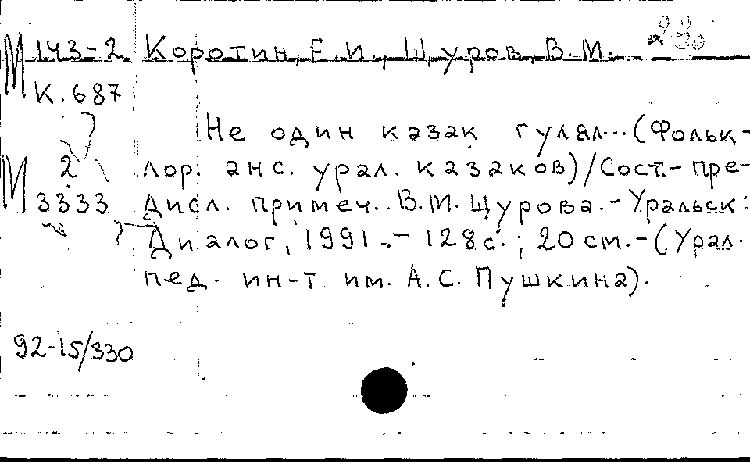 М 143-2 Коротин, Е.И., Щуров, В.М. 280
К. 687
Не один казак гулял... (Фольк-
М 2 лор. анс. урал. казаков)/Сост.- пре-
3333 дисл. примеч. В.М. Щурова.- Уральск:
Диалог, 1991.- 128 с.; 20 см.-(Урал.
пед. ин-т им. А.С. Пушкина).
92-15/330